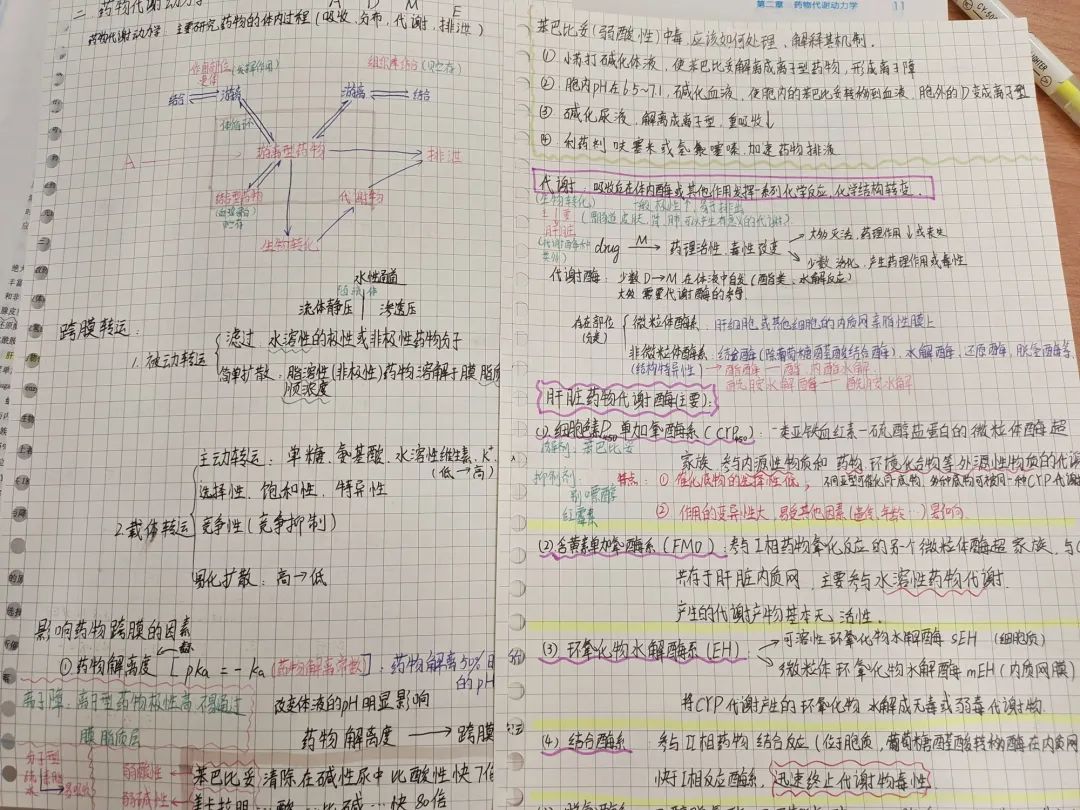 二 药物代谢动力学
A D M E
药物代谢动力学：主要研究药物的体内过程（吸收、分布、代谢、排泄）
作用部位 受体（发挥作用）
组织库储存（贮存）
结合 游离
游离 结合
体循环
A
游离型药物
排泄
结合型药物
（血浆蛋白）
贮存
代谢物
生物转化
水性通道
流体静压 渗透压
跨膜转运：
1. 被动转运
滤过：水溶性的极性或非极性药物分子
简单扩散：脂溶性（非极性）药物溶解于膜脂质
顺浓度
2. 载体转运
主动转运：单糖、氨基酸、水溶性维生素、K⁺
（低→高）
选择性、饱和性、特异性
竞争性（竞争抑制）
易化扩散：高→低
影响药物跨膜的因素
①药物解离度 [pKa = - Ka（药物解离常数）]：药物解离50%时
的pH
离子障：离子型药物极性高，不易通过
膜脂质层
改变体液的pH明显影响
药物解离度 → 跨膜
分子型
弱酸性
弱碱性
苯巴比妥：清除在碱性尿中比酸性快7倍
酸 比碱 快80倍
第二章 药物代谢动力学 11
苯巴比妥（弱酸性）中毒，应该如何处理，解释其机制．
① 小苏打碱化体液，使苯巴比妥解离成离子型药物，形成离子障
② 胞内pH在6.5~7.1，碱化血液，使胞内的苯巴比妥转移到血液，胞外的D变成离子型
③ 碱化尿液，解离成离子型，重吸收↓
④ 利药剂 呋塞米或氢氯噻嗪，加速药物排泄
代谢：吸收后在体内酶或其他作用发挥一系列化学反应，化学结构转变．
（生物转化）
主要
肝脏
drug M→ 药理活性、毒性改变
大多灭活，药理作用↓或丧失
少数活化，产生药理作用或毒性
代谢酶：少数D→M在体液中自发（酯类、水解反应）
大多需要代谢酶的参与．
存在部位
（分类）
微粒体酶系：肝细胞或其他细胞的内质网亲脂性膜上
非微粒体酶系：结合酶（除葡萄糖醛酸结合酶）、水解酶、还原酶、脱氢酶等
（结构特异性）→ 酯酶—酯、内酯水解．
酰胺水解酶—酰胺水解
肝脏药物代谢酶（主要）：
(1) 细胞色素P450单加氧酶系（CYP450）：一类亚铁血红素—硫醇盐蛋白的微粒体酶超
家族，参与内源性物质和药物、环境化合物等外源性物质的代谢
诱导剂：苯巴比妥
抑制剂：
别嘌醇
红霉素
特点：① 催化底物的选择性低；不同亚型可催化同一底物，多种底物可被同一种CYP代谢
② 作用的变异性大，易受其他因素（遗传、年龄…）影响
(2) 含黄素单加氧酶系（FMO）：参与I相药物氧化反应的另个微粒体酶超家族，与C
共存于肝脏内质网，主要参与水溶性药物代谢．
产生的代谢产物基本无活性．
(3) 环氧化物水解酶系（EH）：
可溶性环氧化物水解酶 sEH （细胞质）
微粒体环氧化物水解酶 mEH（内质网膜）
将CYP代谢产生的环氧化物水解成无毒或弱毒代谢物．
(4) 结合酶系：参与II相药物结合反应（位于胞质，葡萄糖醛酸转移酶在内质网
快于I相反应酶系，迅速终止代谢物毒性